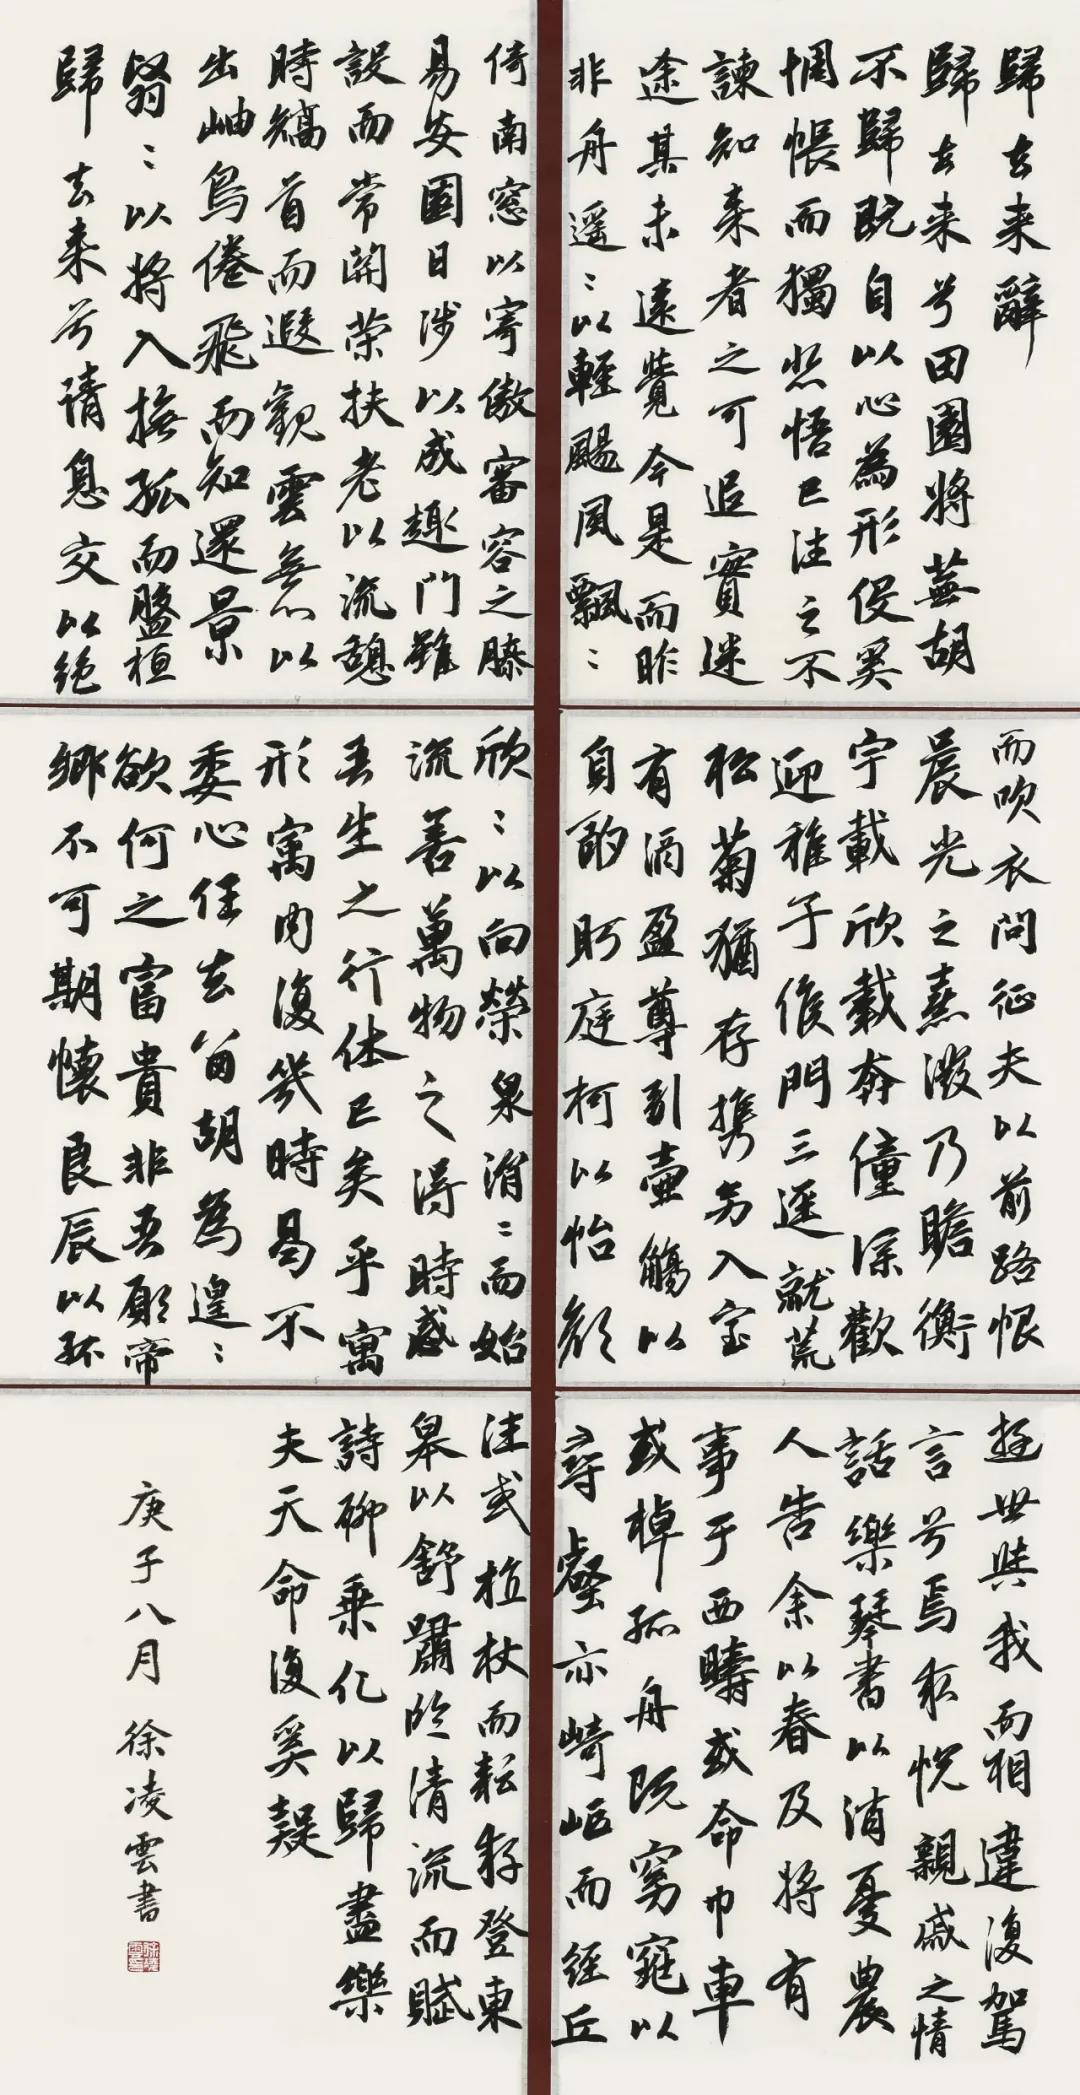 歸去来辭
歸去来兮田園將蕪胡
不歸既自以心為形役奚
惆悵而獨悲悟已往之不
諫知来者之可追實迷
途其未遠覺今是而昨
非舟遥〻以輕颺風飄〻
而吹衣問征夫以前路恨
晨光之熹微乃瞻衡
宇載欣載奔僮僕歡
迎稚子候門三逕就荒
松菊猶存携幼入室
有酒盈尊引壺觴以
自酌眄庭柯以怡顏
倚南窓以寄傲審容之膝
易安園日涉以成趣門雖
設而常開榮扶老以流憩
時矯首而遐觀雲無心以
出岫鳥倦飛而知還景
翳〻以將入撫孤而盤桓
歸去来兮請息交以絶
遊世與我而相違復駕
言兮焉求悅親戚之情
話樂琴書以消憂農
人告余以春及將有
事于西疇或命巾車
或棹孤舟既窈窕以
尋壑亦崎嶇而經丘
欣〻以向榮泉涓〻而始
流善萬物之得時感
吾生之行休已矣乎寓
形寓内復幾時曷不
委心任去留胡為遑〻
欲何之富貴非吾願帝
鄉不可期懷良辰以孤
往或植杖而耘耔登東
皋以舒嘯臨清流而賦
詩聊乘化以歸盡樂
夫天命復奚疑
庚子八月徐凌雲書